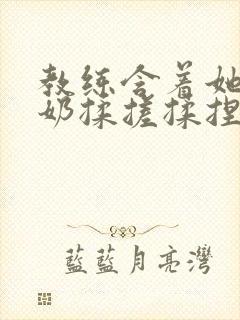 教练含着她
奶揉搓揉捏
藍藍月亮灣